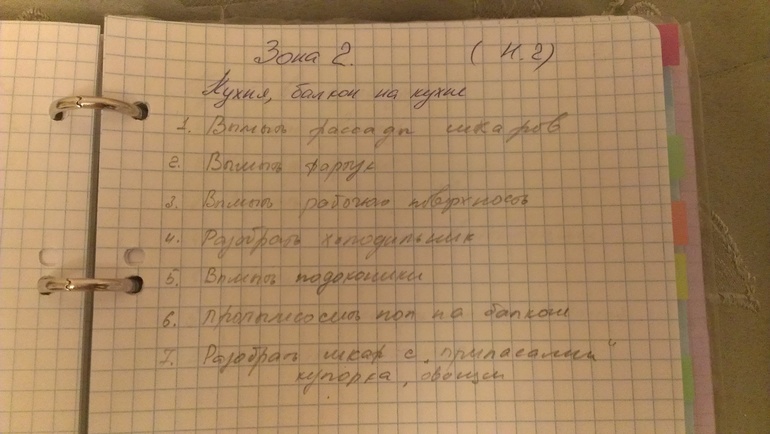 Зона 2. (Н. 2)
Кухня, балкон на кухне
1. Вымыть фассады шкафов
2. Вымыть фартук
3. Вымыть рабочую поверхность
4. Разобрать холодильник
5. Вымыть подоконники
6. Пропылесосить пол на балконе
7. Разобрать шкаф с „припасами"
купорка, овощи